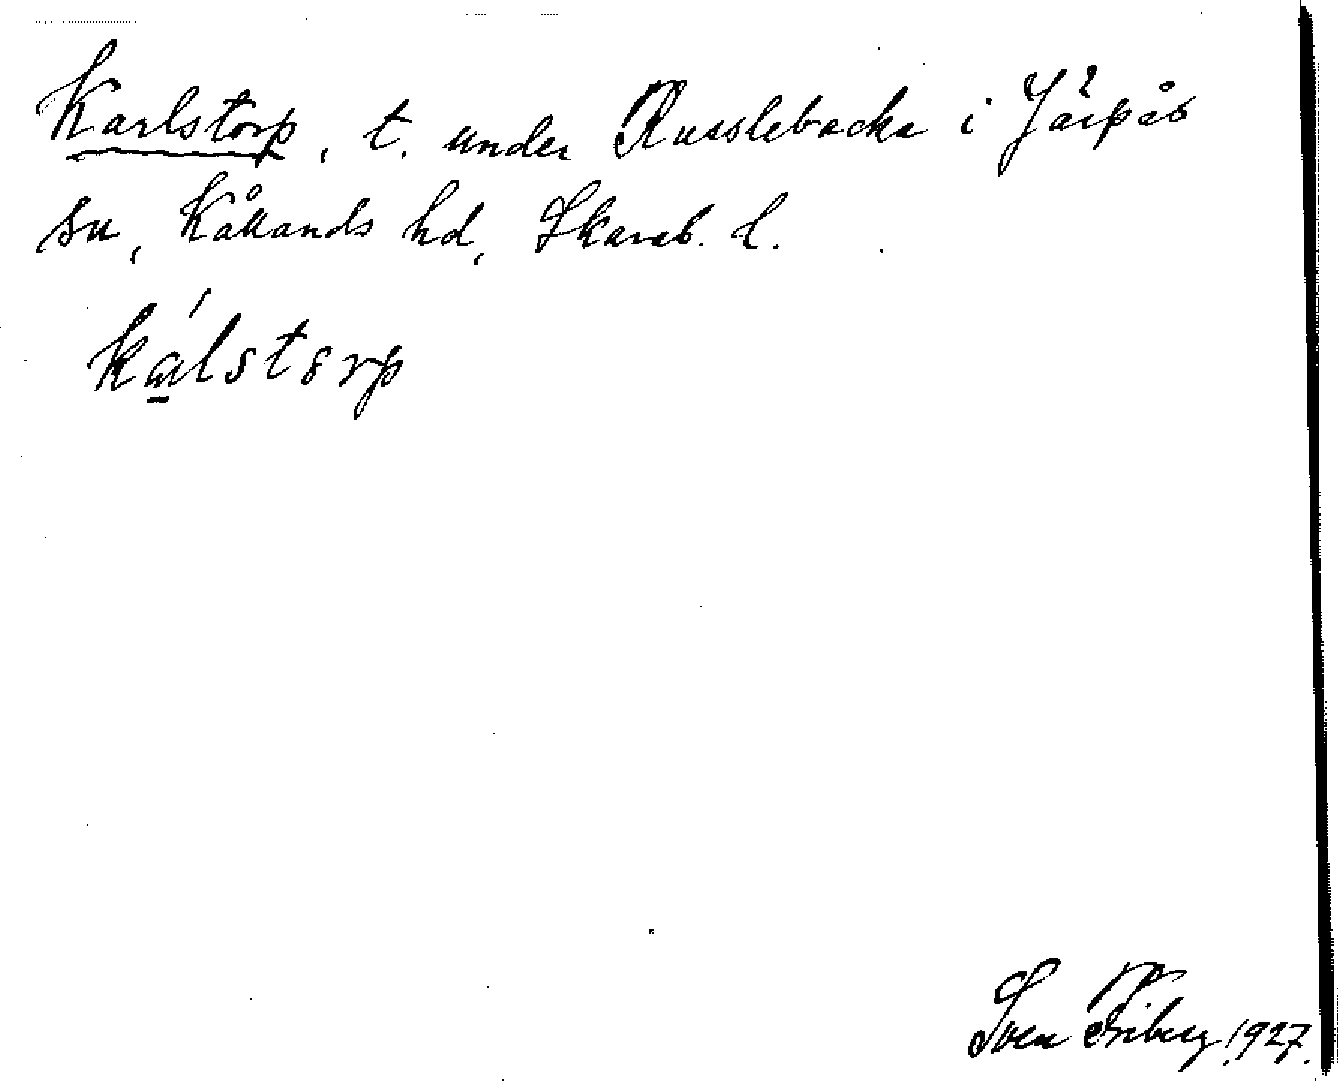 Karlstorp, t. under Russlebacka i Järpås
sn, Kållands hd, Skarab. l.
kálstorp
Sven Friberg 1927.